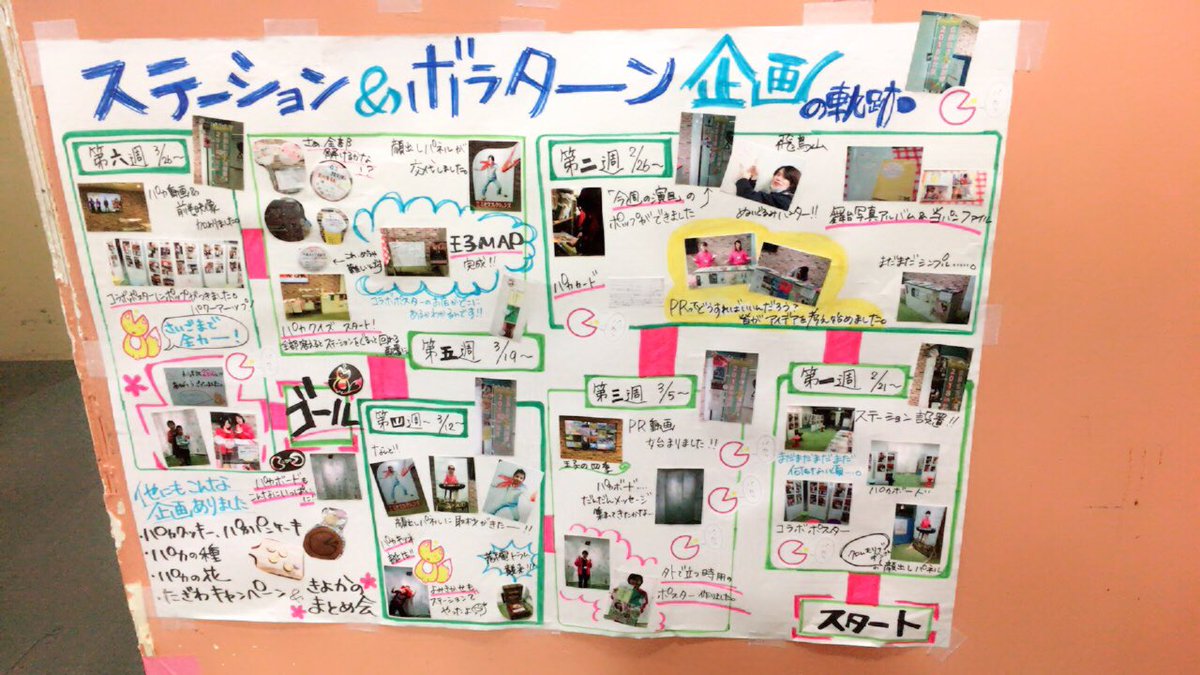 ステーション&ボラターン企画の軌跡。
スタート
第一週 2/21~
ステーション設置!!
まだまだまだまだ
パカボード
コラボポスター
顔出しパネル
第二週 2/26~
「今週の演目」の
ポップができました
飛鳥山
ぬいぐるみハンター!!
舞台写真アルバム&当パンファイル
パカカード
PRってどうすればいいんだろう?
皆がアイデアを考え始めました。
まだまだシンプル……。
第三週 3/5~
PR動画
始まりました!!
王子の四季
パカボード…
だんだんメッセージ
集まってきたかな~
外で立つ時用の
ポスター作成した。
第四週~3/12~
なんと
顔出しパネルに取材がきたー!!
よみきかせも
ステーションで
やったよ
第五週 3/19~
さぁ全部
解けるかな!?
顔出しパネルが
交代しました。
王子MAP
完成!!
コラボポスターのお店がどこに
あるかわかるンです!!
パカクイズスタート!
第六週 3/26~
パカ動画の
前座映像
加わりました。
コラボポスターにポップがつきました。
パワーアップ!
さいごまで
全力ー!
ゴール
パカボードも
こんなにいっぱい!?
他にもこんな
企画ありました
パカクッキー、パカパンケーキ
・パカの種
・パカの花
・たざわキャンペーン&きよかの
まとめ会